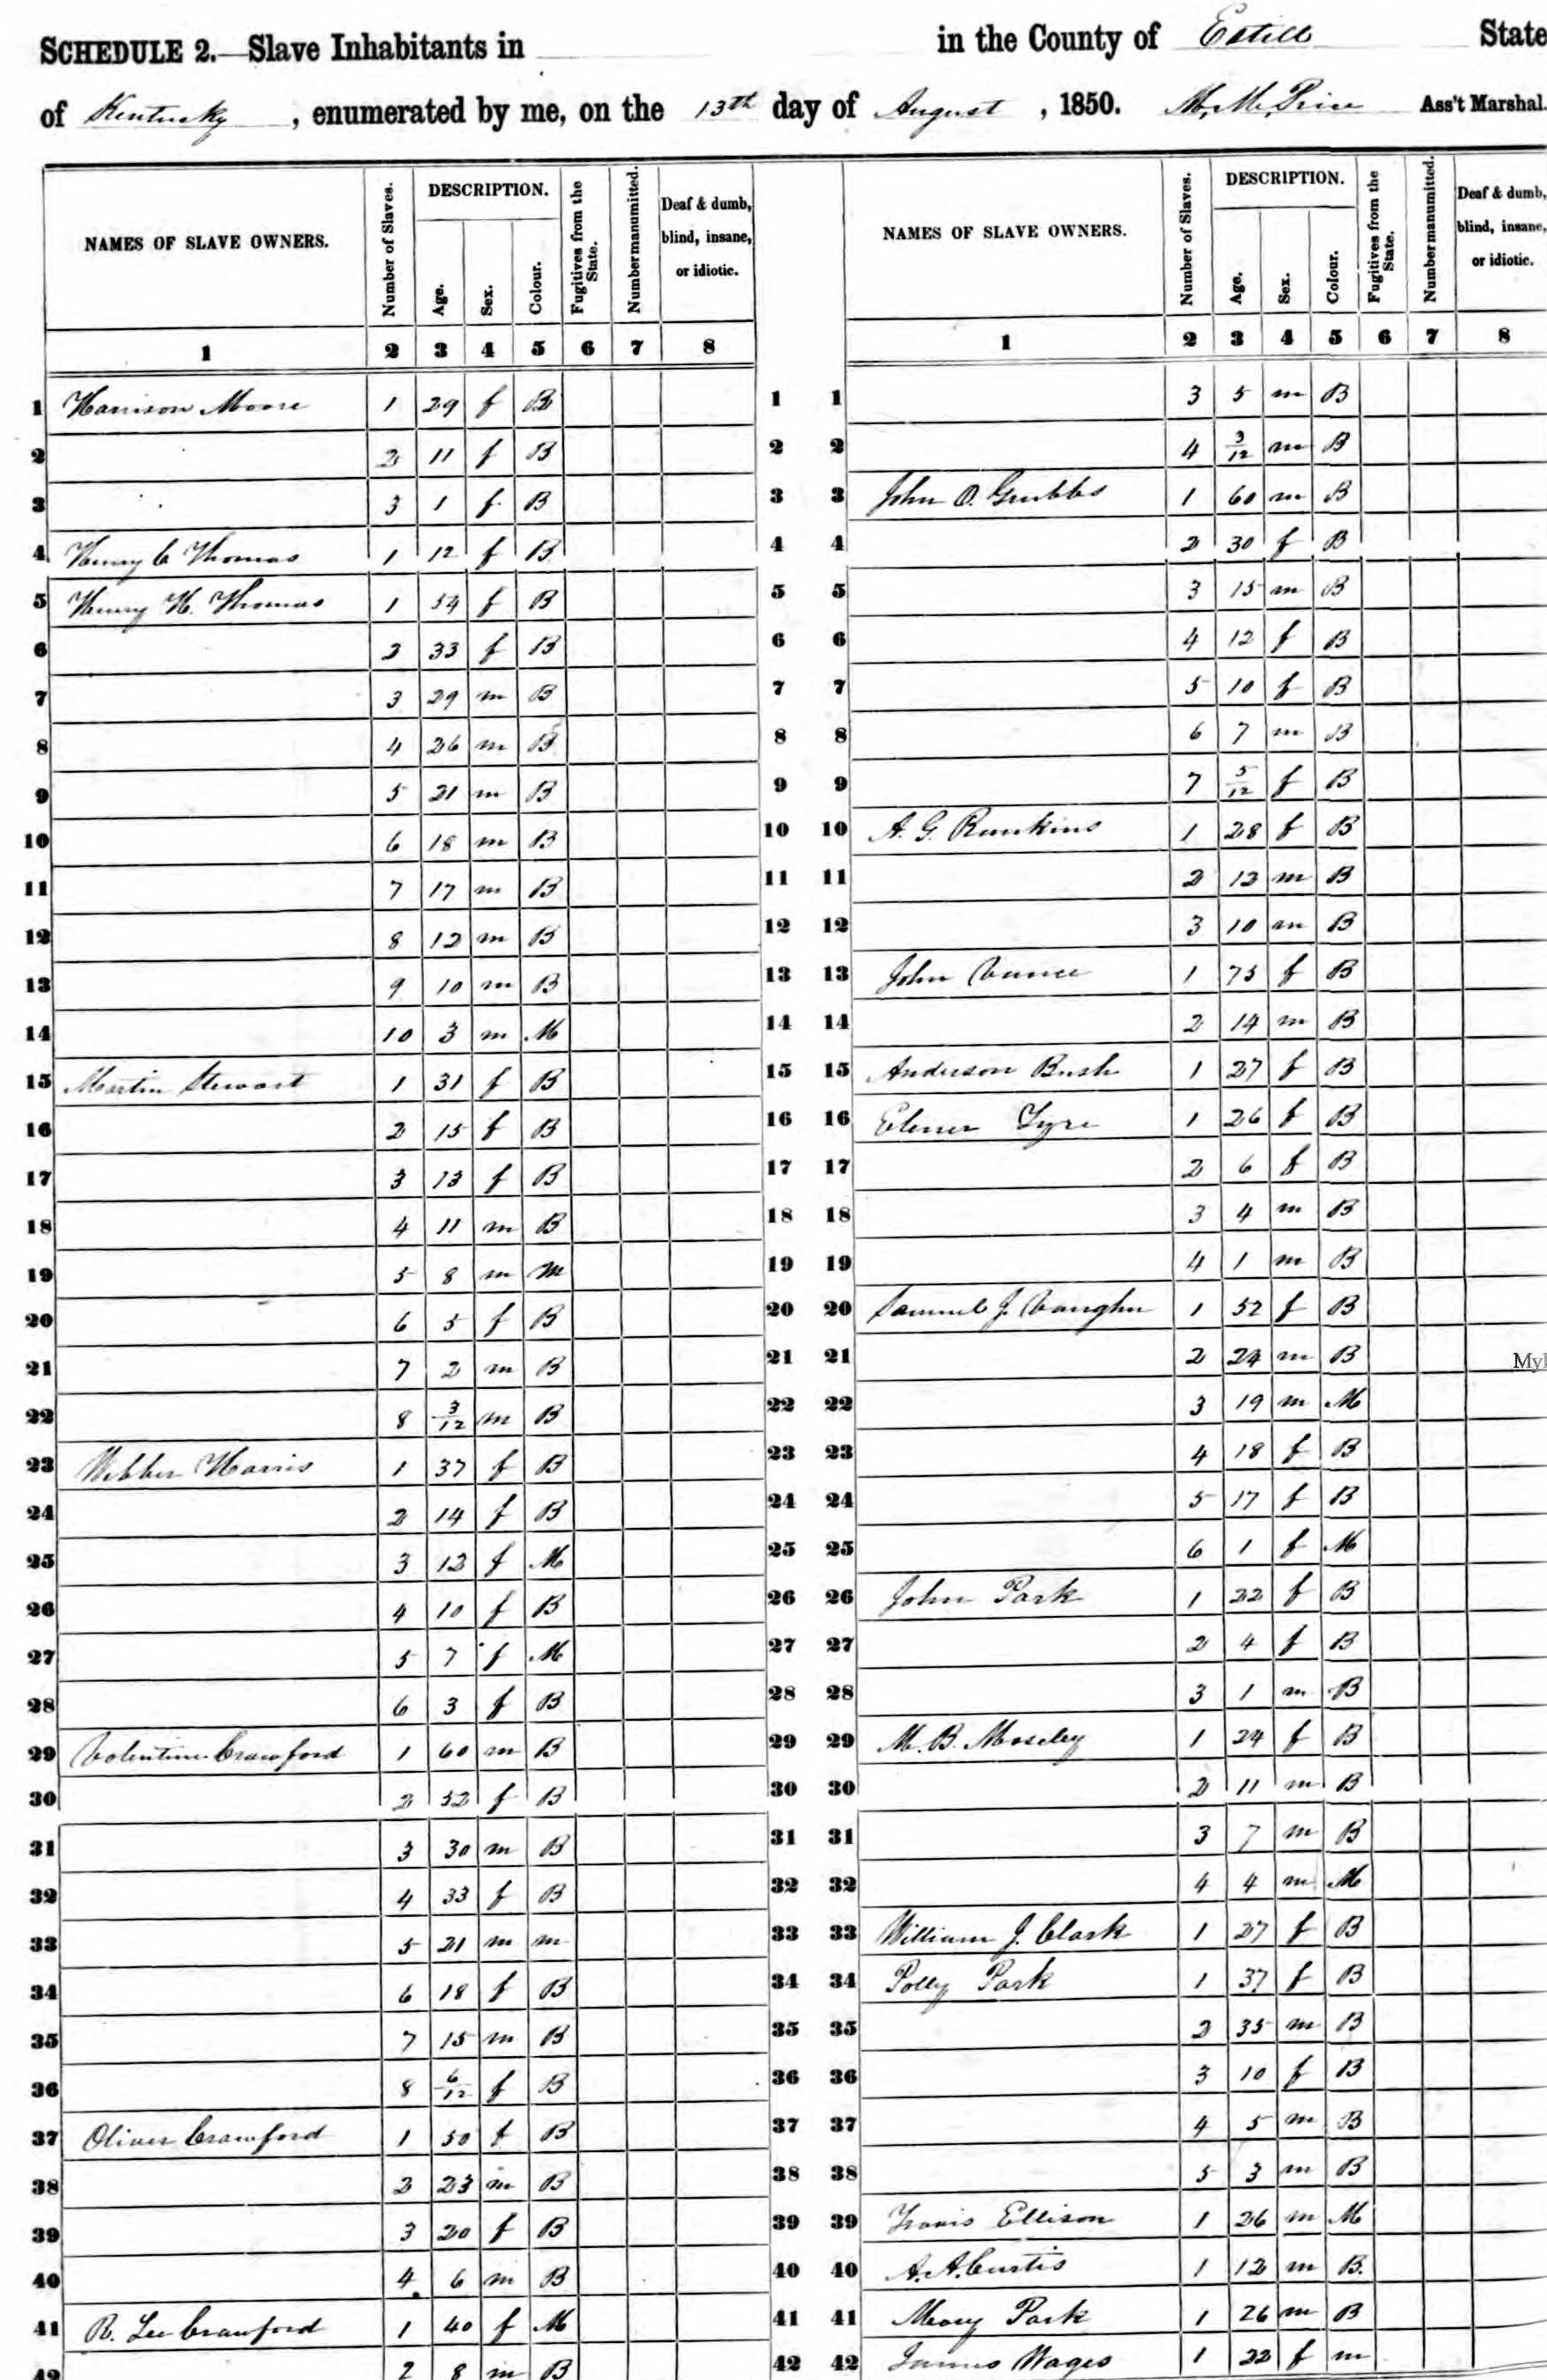 SCHEDULE 2.—Slave Inhabitants in in the County of Estill State
of Kentucky, enumerated by me, on the 13th day of August, 1850. M. M. Price Ass't Marshal.
NAMES OF SLAVE OWNERS. Number of Slaves. DESCRIPTION. Age. Sex. Colour. Fugitives from the State. Number manumitted. Deaf & dumb, blind, insane, or idiotic.
1 2 3 4 5 6 7 8
1 Harrison Moore 1 29 f B
2 2 11 f B
3 3 1 f B
4 Henry C Thomas 1 12 f B
5 Henry H. Thomas 1 54 f B
6 2 33 f B
7 3 29 m B
8 4 26 m B
9 5 21 m B
10 6 18 m B
11 7 17 m B
12 8 12 m B
13 9 10 m B
14 10 3 m M
15 Martin Stewart 1 31 f B
16 2 15 f B
17 3 13 f B
18 4 11 m B
19 5 8 m m
20 6 5 f B
21 7 2 m B
22 8 3/12 m B
23 Webber Harris 1 37 f B
24 2 14 f B
25 3 12 f M
26 4 10 f B
27 5 7 f M
28 6 3 f B
29 Volentine Crawford 1 60 m B
30 2 52 f B
31 3 30 m B
32 4 33 f B
33 5 21 m m
34 6 18 f B
35 7 15 m B
36 8 6/12 f B
37 Oliver Crawford 1 50 f B
38 2 23 m B
39 3 20 f B
40 4 6 m B
41 R. Lee Crawford 1 40 f M
42 2 8 m B
NAMES OF SLAVE OWNERS. Number of Slaves. DESCRIPTION. Age. Sex. Colour. Fugitives from the State. Number manumitted. Deaf & dumb, blind, insane, or idiotic.
1 2 3 4 5 6 7 8
1 1 3 5 m B
2 2 4 3/12 m B
3 3 John O. Grubbs 1 60 m B
4 4 2 30 f B
5 5 3 15 m B
6 6 4 12 f B
7 7 5 10 f B
8 8 6 7 m B
9 9 7 5/12 f B
10 10 A. G. Rankins 1 28 f B
11 11 2 12 m B
12 12 3 10 m B
13 13 John Vance 1 75 f B
14 14 2 14 m B
15 15 Anderson Bush 1 27 f B
16 16 Elener Tyre 1 26 f B
17 17 2 6 f B
18 18 3 4 m B
19 19 4 1 m B
20 20 Samuel J. Vaughn 1 52 f B
21 21 2 24 m B
22 22 3 19 m M
23 23 4 18 f B
24 24 5 17 f B
25 25 6 1 f M
26 26 John Park 1 22 f B
27 27 2 4 f B
28 28 3 1 m B
29 29 M. B. Moseley 1 24 f B
30 30 2 11 m B
31 31 3 7 m B
32 32 4 4 m M
33 33 William J. Clark 1 27 f B
34 34 Polly Park 1 37 f B
35 35 2 35 m B
36 36 3 10 f B
37 37 4 5 m B
38 38 5 3 m B
39 39 Travis Ellison 1 26 m M
40 40 A. A. Curtis 1 12 m B.
41 41 Mary Park 1 26 m B
42 42 James Wages 1 22 f m